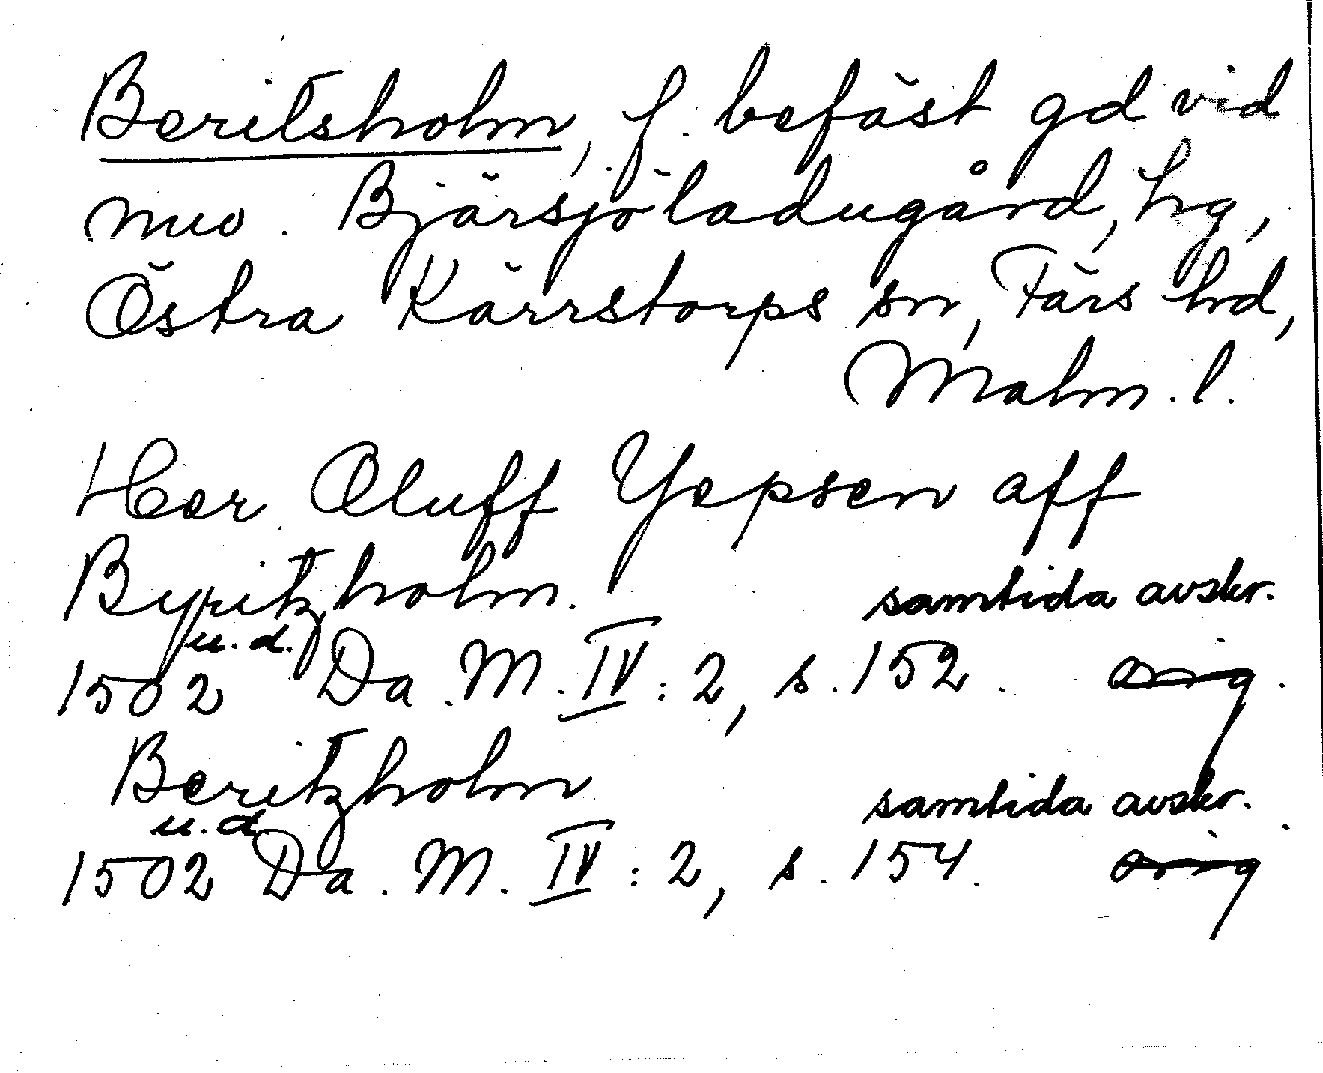 Beritsholm, f. befäst gd vid
nuv. Bjärsjöladugård, hg,
Östra Kärrstorps sn, Färs hd,
Malm. l.
Her Oluff Yepsen aff
Byritzholm. samtida avskr.
u.d.
1502 Da. M. IV:2, s. 152. orig.
Beritzholm samtida avskr.
u.d.
1502 Da. M. IV:2, s. 154. orig